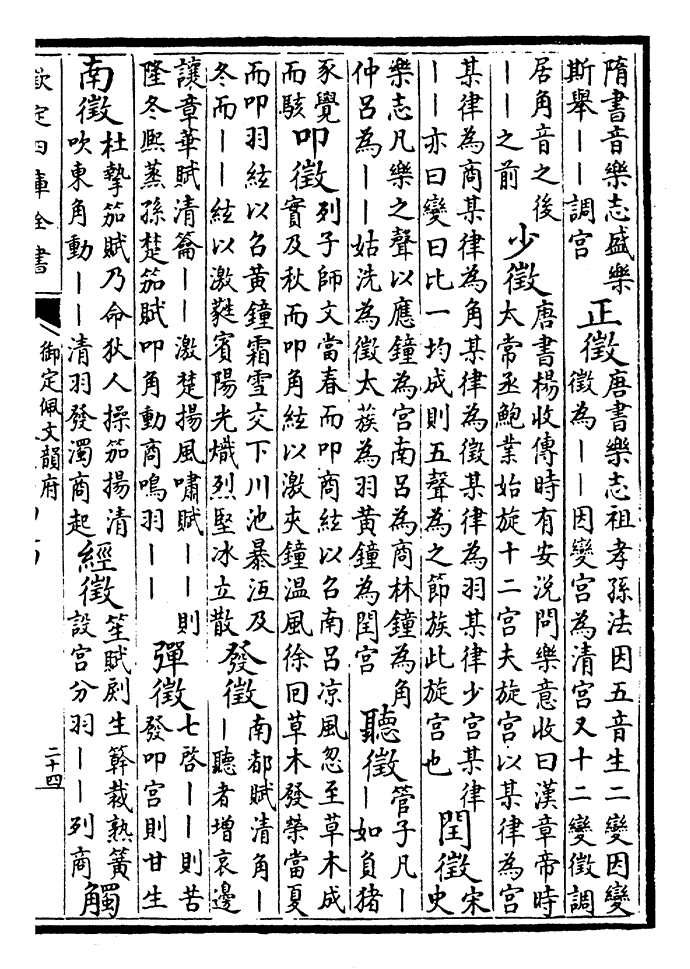 隋書音樂志盛樂
斯舉――調宮
正徵
唐書樂志祖孝孫法因五音生二變因變
徵為――因變宮為清宮又十二變徵調
居角音之後
――之前
少徵
唐書楊收傳時有安涚問樂意收曰漢章帝時
太常丞鮑業始旋十二宮夫旋宮以某律為宮
某律為商某律為角某律為徵某律為羽某律少宮某律
――亦曰變曰比一均成則五聲為之節族此旋宮也
閏徵
宋
史
樂志凡樂之聲以應鐘為宮南呂為商林鐘為角
仲呂為――姑洗為徵太蔟為羽黃鐘為閏宮
聽徵
管子凡―
―如負猪
豕覺
而駭
叩徵
列子師文當春而叩商絃以召南呂凉風忽至草木成
實及秋而叩角絃以激夾鐘溫風徐回草木發榮當夏
而叩羽絃以召黃鐘霜雪交下川池暴沍及
冬而――絃以激蕤賓陽光熾烈堅冰立散
發徵
南都賦清角―
―聽者增哀邊
讓章華賦清籥――激楚揚風嘯賦――則
隆冬熈蒸孫楚笳賦叩角動商鳴羽――
彈徵
七啓――則苦
發叩宮則甘生
南徵
杜摯笳賦乃命狄人操笳揚清
吹東角動――清羽發濁商起
經徵
笙賦剭生簳裁熟簧
設宮分羽――列商
觸
欽定四庫全書
御定佩文韻府
二十四